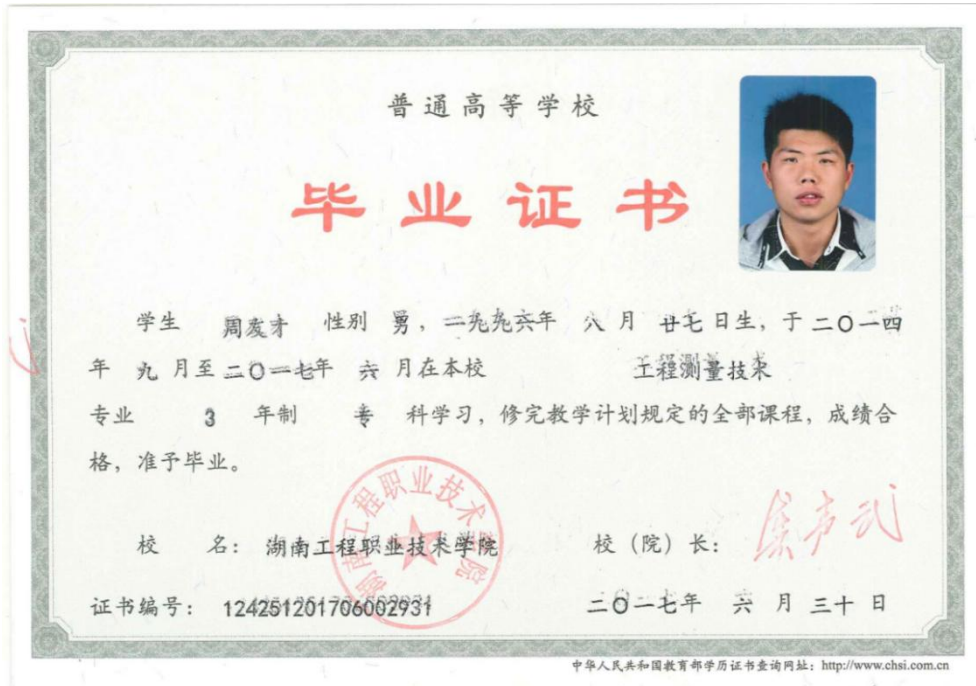 普通高等学校
毕业证书
学生 周友才 性别 男，一九九六年 八 月 廿七日生，于二〇一四
年 九 月至二〇一七年 六 月在本校 工程测量技术
专业 3 年制 专 科学习，修完教学计划规定的全部课程，成绩合
格，准予毕业。
湖南工程职业技术学院
校 名：湖南工程职业技术学院 校（院）长：
证书编号：124251201706002931 二〇一七年 六 月 三十 日
中华人民共和国教育部学历证书查询网址：http://www.chsi.com.cn